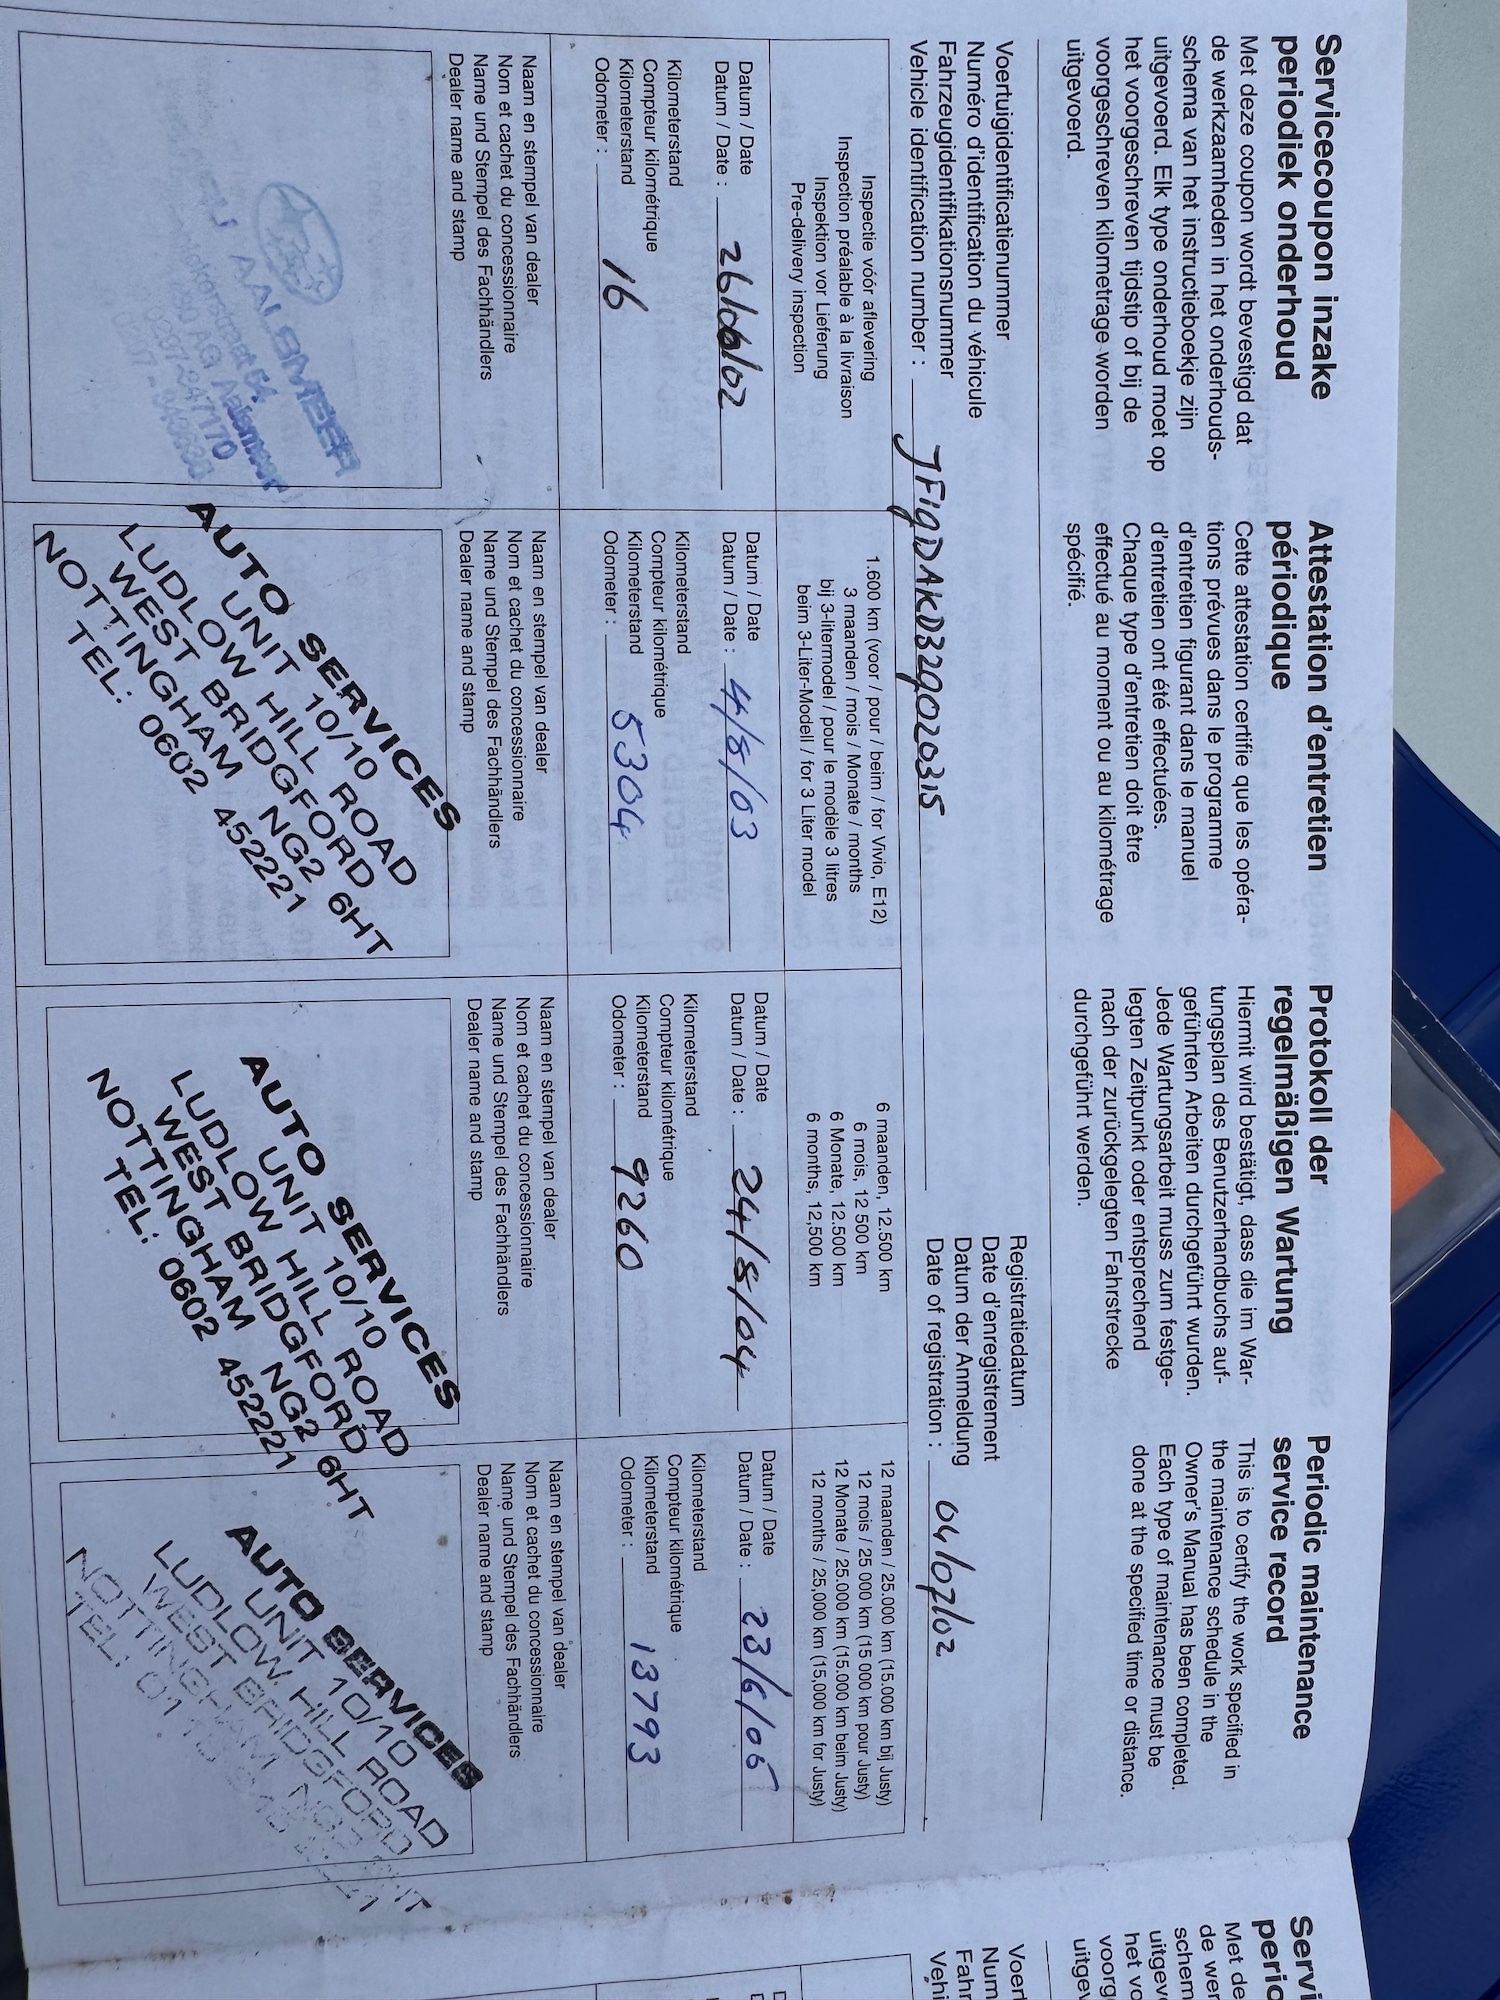 Servicecoupon inzake
periodiek onderhoud
Met deze coupon wordt bevestigd dat
de werkzaamheden in het onderhouds-
schema van het instructieboekje zijn
uitgevoerd. Elk type onderhoud moet op
het voorgeschreven tijdstip of bij de
voorgeschreven kilometrage worden
uitgevoerd.
Attestation d'entretien
périodique
Cette attestation certifie que les opéra-
tions prévues dans le programme
d'entretien figurant dans le manuel
d'entretien ont été effectuées.
Chaque type d'entretien doit être
effectué au moment ou au kilométrage
spécifié.
Protokoll der
regelmäßigen Wartung
Hiermit wird bestätigt, dass die im War-
tungsplan des Benutzerhandbuchs auf-
geführten Arbeiten durchgeführt wurden.
Jede Wartungsarbeit muss zum festge-
legten Zeitpunkt oder entsprechend
nach der zurückgelegten Fahrstrecke
durchgeführt werden.
Periodic maintenance
service record
This is to certify the work specified in
the maintenance schedule in the
Owner's Manual has been completed.
Each type of maintenance must be
done at the specified time or distance.
Voertuigidentificatienummer
Numéro d'identification du véhicule
Fahrzeugidentifikationsnummer
Vehicle identification number : JF1GDAKD32G020315
Registratiedatum
Date d'enregistrement
Datum der Anmeldung
Date of registration : 04/07/02
Inspectie vóór aflevering
Inspection préalable à la livraison
Inspektion vor Lieferung
Pre-delivery inspection
Datum / Date
Datum / Date : 26/06/02
Kilometerstand
Compteur kilométrique
Kilometerstand
Odometer : 16
Naam en stempel van dealer
Nom et cachet du concessionnaire
Name und Stempel des Fachhändlers
Dealer name and stamp
AALSMEER
Aalsmeer
1.600 km (voor / pour / beim / for Vivio, E12)
3 maanden / mois / Monate / months
bij 3-litermodel / pour le modèle 3 litres
beim 3-Liter-Modell / for 3 Liter model
Datum / Date
Datum / Date : 4/8/03
Kilometerstand
Compteur kilométrique
Kilometerstand
Odometer : 5304
Naam en stempel van dealer
Nom et cachet du concessionnaire
Name und Stempel des Fachhändlers
Dealer name and stamp
AUTO SERVICES
UNIT 10/10
LUDLOW HILL ROAD
WEST BRIDGFORD
NOTTINGHAM NG2 6HT
TEL: 0602 452221
6 maanden, 12.500 km
6 mois, 12 500 km
6 Monate, 12.500 km
6 months, 12,500 km
Datum / Date
Datum / Date : 24/8/04
Kilometerstand
Compteur kilométrique
Kilometerstand
Odometer : 9260
Naam en stempel van dealer
Nom et cachet du concessionnaire
Name und Stempel des Fachhändlers
Dealer name and stamp
AUTO SERVICES
UNIT 10/10
LUDLOW HILL ROAD
WEST BRIDGFORD
NOTTINGHAM NG2 6HT
TEL: 0602 452221
12 maanden / 25.000 km (15.000 km bij Justy)
12 mois / 25 000 km (15 000 km pour Justy)
12 Monate / 25.000 km (15.000 km beim Justy)
12 months / 25,000 km (15,000 km for Justy)
Datum / Date
Datum / Date : 23/6/05
Kilometerstand
Compteur kilométrique
Kilometerstand
Odometer : 13793
Naam en stempel van dealer
Nom et cachet du concessionnaire
Name und Stempel des Fachhändlers
Dealer name and stamp
AUTO SERVICES
UNIT 10/10
LUDLOW HILL ROAD
WEST BRIDGFORD
NOTTINGHAM NG2
TEL:
Servi
perio
Met de
de wer
schem
uitgev
het vo
voorg
uitgev
Voert
Num
Fahr
Vehi